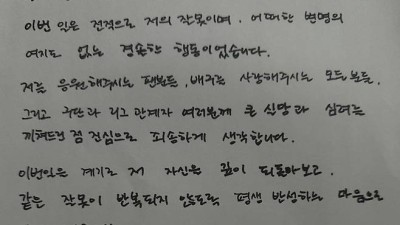 이번 일은 전적으로 저의 잘못이며, 어떠한 변명의
여지도 없는 경솔한 행동이었습니다.
저를 응원해주시는 팬분들, 배구를 사랑해주시는 모든 분들,
그리고 구단과 리그 관계자 여러분께 큰 실망과 심려를
끼쳐드린 점 진심으로 죄송하게 생각합니다.
이번일은 계기로 저 자신을 깊이 되돌아보고,
같은 잘못이 반복되지 않도록 평생 반성하는 마음으로